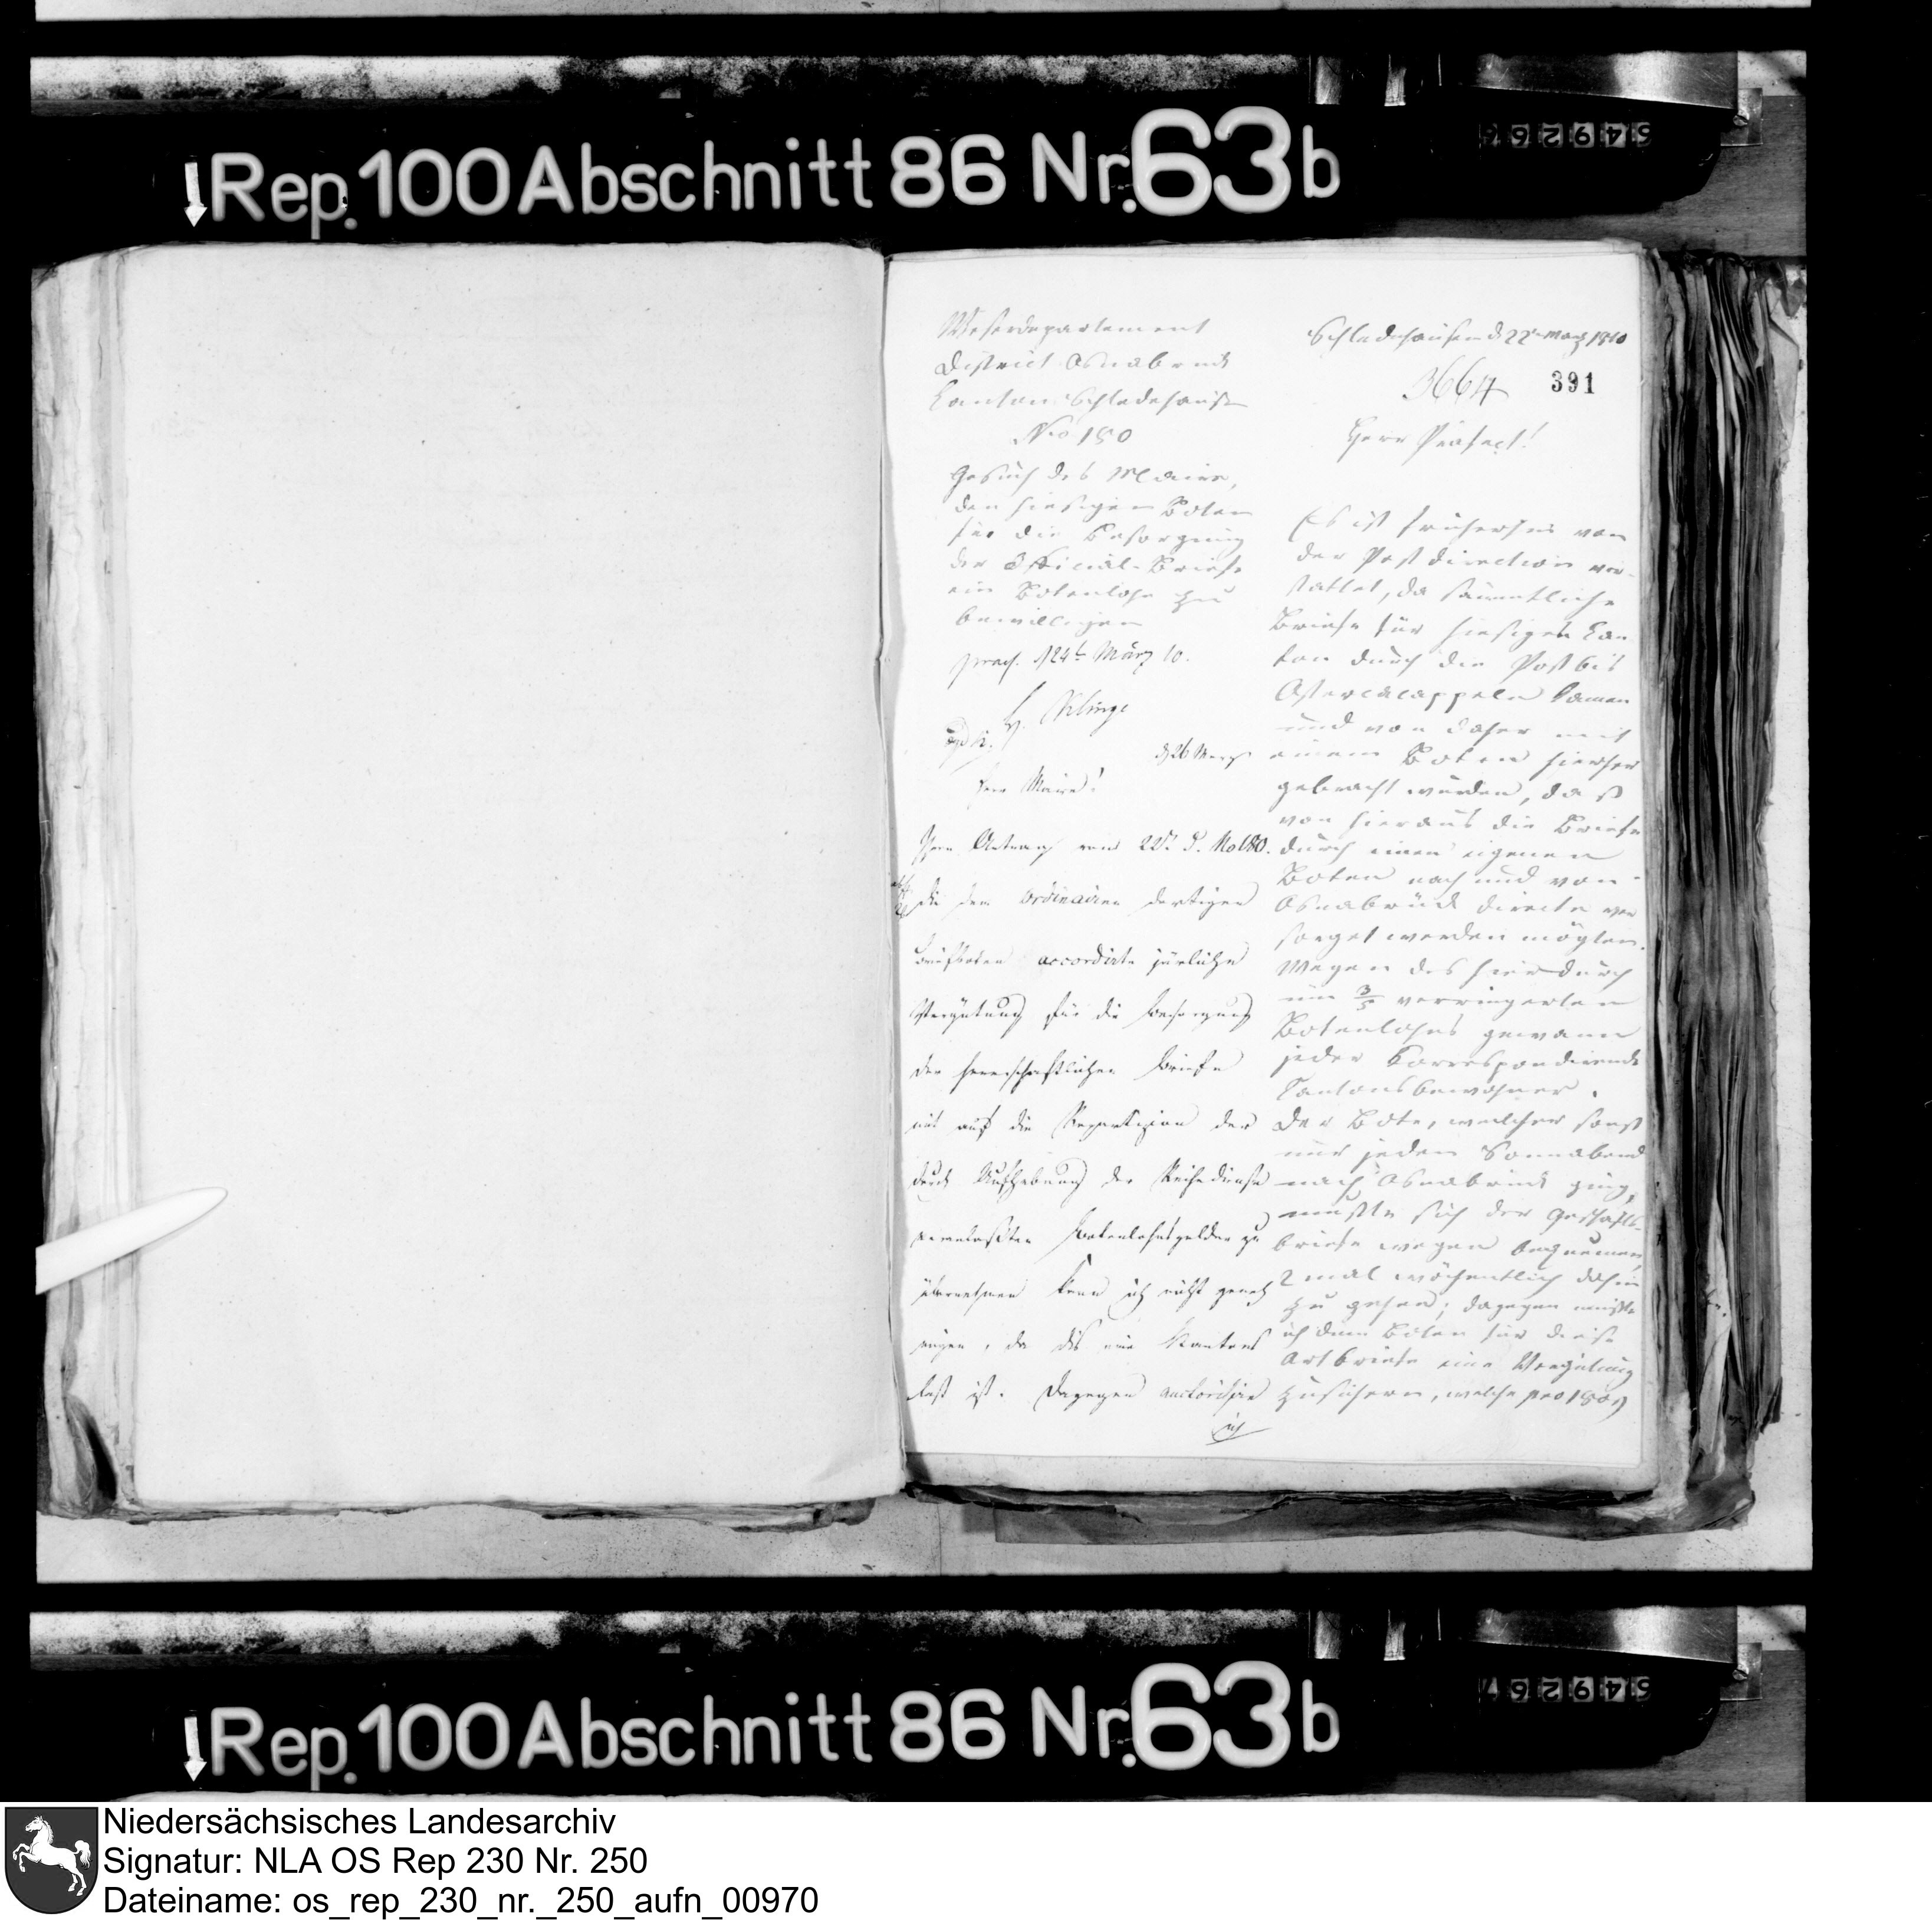 Rep. 100 Abschnitt 86 Nr. 63b
Weserdepartement
District Osnabrück
Canton Schledehausen
No 180
Gesuch des Maire,
den hiesigen Boten
für die Besorgung
der Official-Briefe
ein Botenlohn zu
bewilligen
praes. d 24t März 10.
d 26 Merz
Herr Maire!
Ihren Antrag vom 22t d. No 180.
die dem ordinairen dortigen
Briefboten accordirte järliche
Vergütung für die Besorgung
der herrschaftlichen Briefe
mit auf die Repartizion der
durch Aufhebung der Reihedienste
veranlaßten Botenlohnsgelder zu
übernehmen kann ich nicht geneh
migen, da dis eine Kantons
last ist. Dagegen auctorisire
ich
Schledehausen d 22t Marz 1810
3664
391
Herr Präfect!
Es ist früherhin von
der Postdirection ver-
stattet, da sämmtliche
Briefe für hiesigen Can
ton durch die Post bis
Ostercappeln kamen
und von daher mit
einem Boten hierher
gebracht wurden, daß
von hieraus die Briefe
durch einen eigenen
Boten nach und von
Osnabrück directe ver
sorget werden mögten.
Wegen des hierdurch
um 3/5 verringerten
Botenlohns gewann
jeder Correspondirende
Cantonsbewohner.
Der Bote, welcher sonst
nur jeden Sonnabend
nach Osnabrück ging,
mußte sich der Geschäfts-
briefe wegen bequemen,
2 mal wöchentlich dahin
zu gehen; dagegen mußte
ich dem Boten für diese
Art Briefe eine Vergütung
zusichern, welche pro 1809
Rep. 100 Abschnitt 86 Nr. 63b
Niedersächsisches Landesarchiv
Signatur: NLA OS Rep 230 Nr. 250
Dateiname: os_rep_230_nr._250_aufn_00970